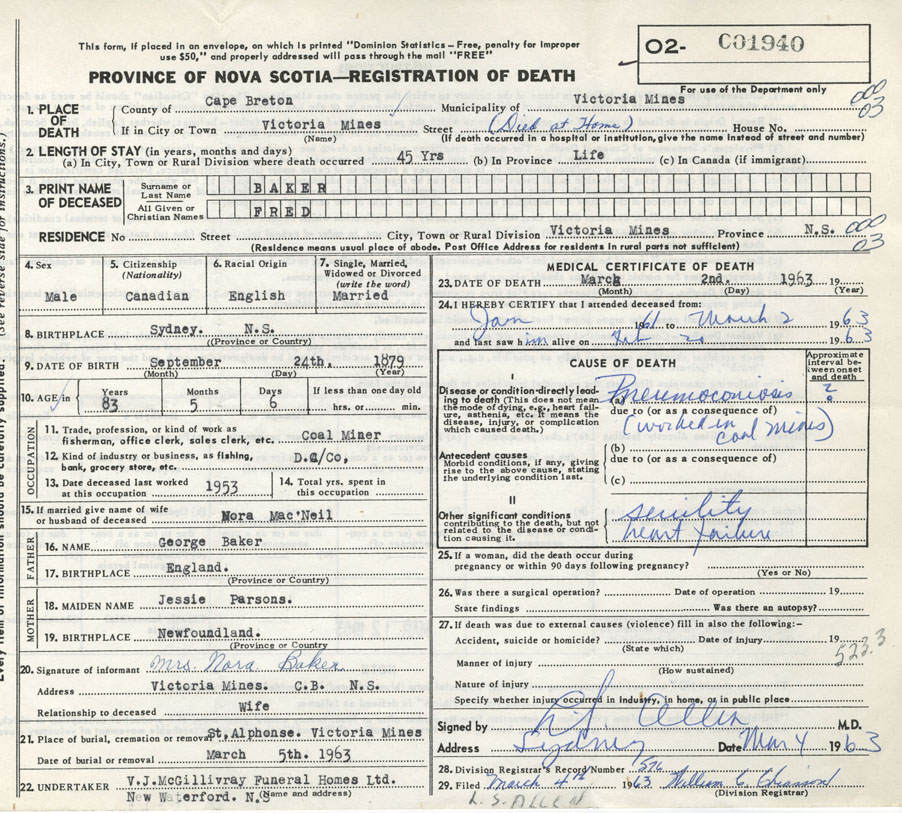 This form, if placed in an envelope, on which is printed "Dominion Statistics – Free, penalty for improper
use $50," and properly addressed will pass through the mail "FREE"
O2- C01940
For use of the Department only
PROVINCE OF NOVA SCOTIA—REGISTRATION OF DEATH
1. PLACE OF DEATH County of Cape Breton Municipality of Victoria Mines 000 03
If in City or Town Victoria Mines Street (Died at Home) House No.
(Name) (If death occurred in a hospital or institution, give the name instead of street and number)
2. LENGTH OF STAY (in years, months and days)
(a) In City, Town or Rural Division where death occurred 45 Yrs (b) In Province Life (c) In Canada (if immigrant)
3. PRINT NAME OF DECEASED Surname or Last Name BAKER
All Given or Christian Names FRED
RESIDENCE No Street City, Town or Rural Division Victoria Mines Province N.S. 000 03
(Residence means usual place of abode. Post Office Address for residents in rural parts not sufficient)
4. Sex 5. Citizenship (Nationality) 6. Racial Origin 7. Single, Married, Widowed or Divorced (write the word)
Male Canadian English Married
8. BIRTHPLACE Sydney. N.S.
(Province or Country)
9. DATE OF BIRTH September 24th. 1879
(Month) (Day) (Year)
10. AGE in Years Months Days If less than one day old
83 5 6 hrs. or min.
OCCUPATION
11. Trade, profession, or kind of work as
fisherman, office clerk, sales clerk, etc. Coal Miner
12. Kind of industry or business, as fishing,
bank, grocery store, etc.
13. Date deceased last worked at this occupation 1953 14. Total yrs. spent in this occupation
15. If married give name of wife
or husband of deceased Nora Mac'Neil
FATHER
16. NAME George Baker
17. BIRTHPLACE England.
(Province or Country)
MOTHER
18. MAIDEN NAME Jessie Parsons.
19. BIRTHPLACE Newfoundland.
(Province or Country
20. Signature of informant Mrs. Nora Baker
Address Victoria Mines. C.B. N.S.
Relationship to deceased Wife
21. Place of burial, cremation or removal St, Alphonse. Victoria Mines
Date of burial or removal March 5th. 1963
22. UNDERTAKER V.J.McGillivray Funeral Homes Ltd.
New Waterford. N.S (Name and address)
MEDICAL CERTIFICATE OF DEATH
23. DATE OF DEATH March 2nd. 1963 19
(Month) (Day) (Year)
24. I HEREBY CERTIFY that I attended deceased from:
Jan 1961 to March 2 1963
and last saw him alive on 1963
CAUSE OF DEATH Approximate interval between onset and death
I
Disease or condition directly leading to death (This does not mean the mode of dying, e.g., heart failure, asthenia, etc. It means the disease, injury, or complication which caused death.)
(a) Pneumoconiosis
due to (or as a consequence of)
(worked in coal mines)
Antecedent causes
Morbid conditions, if any, giving rise to the above cause, stating the underlying condition last.
(b)
due to (or as a consequence of)
(c)
II
Other significant conditions contributing to the death, but not related to the disease or condition causing it.
senility
heart failure
25. If a woman, did the death occur during
pregnancy or within 90 days following pregnancy?
(Yes or No)
26. Was there a surgical operation? Date of operation 19
State findings Was there an autopsy?
27. If death was due to external causes (violence) fill in also the following:–
Accident, suicide or homicide? Date of injury 19
(State which) 523.3
Manner of injury
(How sustained)
Nature of injury
Specify whether injury occurred in industry, in home, or in public place
Signed by Allen M.D.
Address Sydney Date Mar 4 1963
28. Division Registrar's Record Number 1576
29. Filed March 4th 1963 William E. Chiasson
(Division Registrar)
L.S. ALLEN
(See reverse side for instructions.)